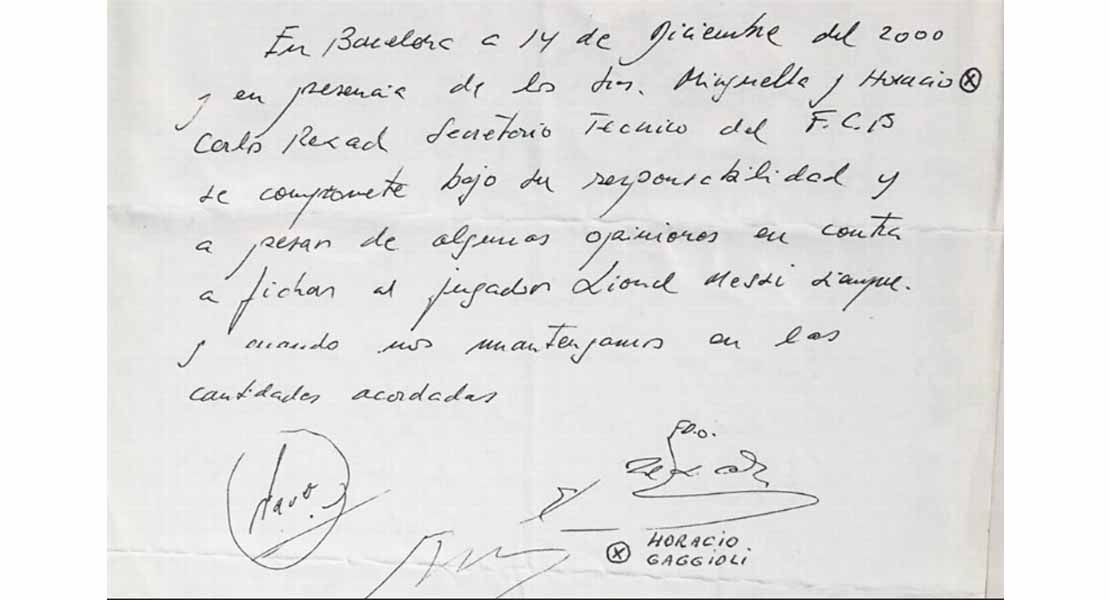 En Barcelona a 14 de Diciembre del 2000
y en presencia de los Srs. Minguella y Horacio ⓧ
Carlos Rexach Secretorio Tecnico del F.C.B
se compromete bajo su responsabilidad y
a pesar de algunas opiniones en contra
a fichar al jugador Lionel Messi siempre.
y cuando nos mantengamos en las
cantidades acordadas
FDO.
ⓧ HORACIO
GAGGIOLI